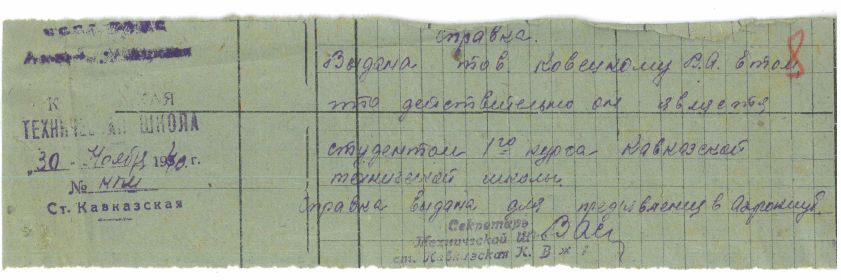 К КАЯ
ТЕХНИЧЕСКАЯ ШКОЛА
"30" Ноября 1940 г.
№
Ст. Кавказская
справка.
8
Выдана тов. Ковецкому В.А. в том
что действительно он является
студентом 1го курса Кавказской
технической школы.
Справка выдана для предъявления в Аэроклуб.
Секретарь
Технической Ш
ст. Кавказская К. В ж